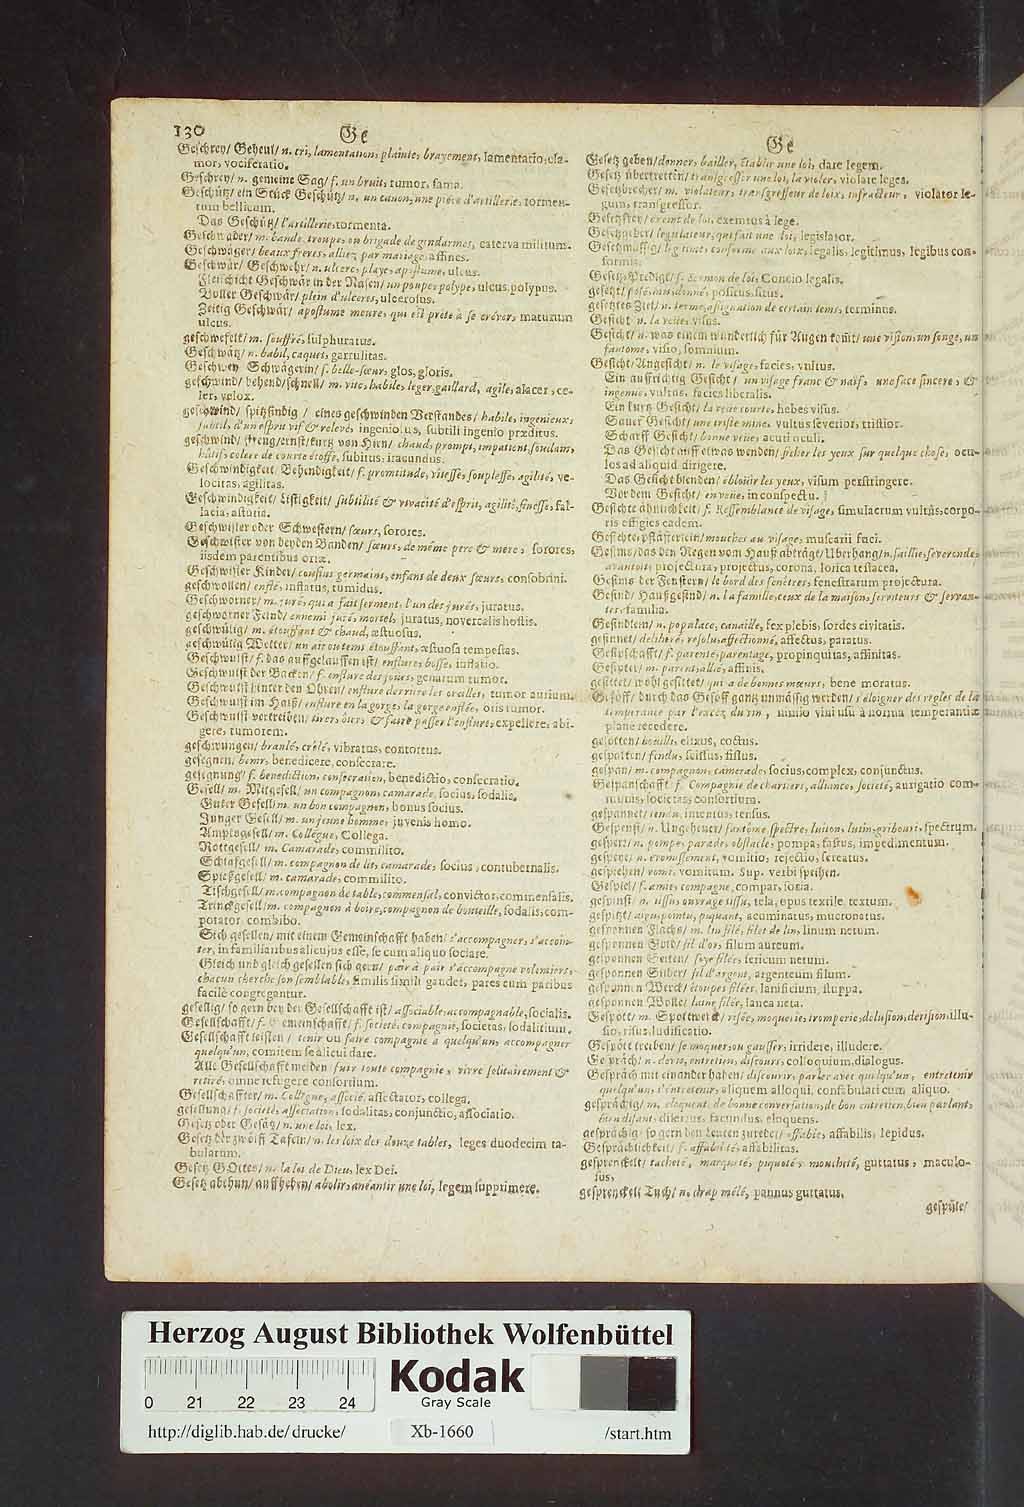 130
Ge
Geschrey/ Geheul/ n. cri, lamentation, plainte, brayement, lamentatio, cla-
mor, vociferatio.
Geschrey/ n. gemeine Sag/ f. un bruit, rumor, fama.
Geschütz/ ein Stück Geschütz/ n. un canon, une pièce d'artillerie, tormen-
tum bellicum.
Das Geschütz/ l'artillerie, tormenta.
Geschwader/ m. bande, troupe, ou brigade de gendarmes, caterva militum.
Geschwäger/ beaux freres, alliez par mariage, affines.
Geschwär/ Geschwehr/ n. ulcere, playe, apostume, ulcus.
Fleischicht Geschwär in der Nasen/ un poupe, polype, ulcus polypus.
Voller Geschwär/ plein d'ulceres, ulcerosus.
Zeitig Geschwär/ apostume meure, qui est prête à se créver, maturum
ulcus.
geschwefelt/ m. souffré, sulphuratus.
Geschwätz/ n. babil, caquet, garrulitas.
Geschwey Schwägerin/ f. belle-sœur, glos, gloris.
geschwind/ behend/ schnell/ m. vite, habile, leger, gaillard, agile, alacer, ce-
ler, velox.
geschwind/ spitzfindig / eines geschwinden Verstandes/ habile, ingenieux,
subtil, d'un esprit vif & relevé, ingeniosus, subtili ingenio præditus.
geschwind/ streng/ ernst/ kurtz von Hirn/ chaud, prompt, impatient, soudain,
hâtif, colere de courte étoffe, subitus, iracundus.
Geschwindigkeit/ Behendigkeit/ f. promtitude, vitesse, souplesse, agilité, ve-
locitas, agilitas.
Geschwindigkeit/ Listigkeit/ subtilité & vivacité d'esprit, agilité, finesse, fal-
lacia, astutia.
Geschwister oder Schwestern/ sœurs, sorores.
Geschwister von beyden Banden/ sœurs, de même pere & mere, sorores,
iisdem parentibus ortæ.
Geschwister Kinder/ cousins germains, enfans de deux sœurs, consobrini.
geschwollen/ enflé, inflatus, tumidus.
Geschworner/ m. juré, qui a fait serment, l'un des jurés, juratus.
geschworner Feind/ ennemi juré, mortel, juratus, novercalis hostis.
geschwülig/ m. étouffant & chaud, æstuosus.
geschwülig Wetter/ un air ou tems étouffant, æstuosa tempestas.
Geschwulst/ f. das auffgelauffen ist/ enflure, bosse, inflatio.
Geschwulst der Backen/ f. enflure des joues, genarum tumor.
Geschwulst hinter den Ohren/ enflure derriere les oreilles, tumor aurium.
Geschwulst im Halß/ enflure en la gorge, la gorge enflée, oris tumor.
Geschwulst vertreiben/ tirer, ôter, & faire passer l'enflure, expellere, abi-
gere, tumorem.
geschwungen/ branlé, crêlé, vibratus, contortus.
gesegnen/ benir, benedicere, consecrare.
gesegnung/ f. benediction, consecration, benedictio, consecratio.
Gesell/ m. Mitgesell/ un compagnon, camarade, socius, sodalis.
Guter Gesell/ m. un bon compagnon, bonus socius.
Junger Gesell/ m. un jeune homme, juvenis homo.
Amptsgesell/ m. Collegue, Collega.
Rottgesell/ m. Camarade, commilito.
Schlafgesell/ m. compagnon de lit, camarade, socius, contubernalis.
Spießgesell/ m. camarade, commilito.
Tischgesell/ m. compagnon de table, commensal, convictor, commensalis.
Trinckgesell/ m. compagnon à boire, compagnon de bouteille, sodalis, com-
potator, combibo.
Sich gesellen/ mit einem Gemeinschafft haben/ s'accompagner, s'accoin-
ter, in familiaribus alicujus esse, se cum aliquo sociare.
Gleich und gleich gesellen sich gern/ pair à pair s'accompagne volontiers,
chacun cherche son semblable, similis simili gaudet, pares cum paribus
facilè congregantur.
gesellig/ so gern bey der Gesellschafft ist/ associable, accompagnable, socialis.
Gesellschafft/ f. Gemeinschafft/ f. societé, compagnie, societas, sodalitium.
Gesellschafft leisten / tenir ou faire compagnie à quelqu'un, accompagner
quelqu'un, comitem se alicui dare.
Alle Gesellschafft meiden/ fuir toute compagnie, vivre solitairement &
retiré, omne refugere consortium.
Gesellschaffter/ m. Collegue, associé, assectator, collega.
gesellung/ f. societé, association, sodalitas, conjunctio, associatio.
Gesetz oder Gesätz/ n. une loi, lex.
Gesetz der zwölff Tafeln/ n. les loix des douze tables, leges duodecim ta-
bularum.
Gesetz GOttes/ n. la loi de Dieu, lex Dei.
Gesetz abthun/ auffheben/ abolir, anéantir une loi, legem supprimere.
Ge
Gesetz geben/ donner, bailler, établir une loi, dare legem.
Gesetz übertretten/ transgresser une loi, la violer, violare leges.
Gesetzbrecher/ m. violateur, transgresseur de loix, infracteur, violator le-
gum, transgressor.
Gesetzfrey/ exemt de loi, exemtus à lege.
Gesetzgeber/ legislateur, qui fait une loi, legislator.
Gesetzmässig/ legitime, conforme aux loix, legalis, legitimus, legibus con-
formis.
Gesetz-Predigt/ f. Sermon de loi, Concio legalis.
gesetzt/ posé, mis, donné, positus, situs.
gesetztes Ziel/ n. terme, assignation de certain tems, terminus.
Gesicht n. la veüe, visus.
Gesicht/ n. was einem wunderlich für Augen komt/ une vision, un songe, un
fantome, visio, somnium.
Gesicht/ Angesicht/ n. le visage, facies, vultus.
Ein auffrichtig Gesicht/ un visage franc & naif, une face sincere, &
ingenue, vultus, facies liberalis.
Ein kurtz Gesicht/ la veüe courte, hebes visus.
Sauer Gesicht/ une triste mine, vultus severior, tristior.
Scharff Gesicht/ bonne veüe, acuti oculi.
Das Gesicht auff etwas wenden/ ficher les yeux sur quelque chose, ocu-
los ad aliquid dirigere.
Das Gesicht blenden/ éblouir les yeux, visum perstringere.
Vor dem Gesicht/ en veüe, in conspectu.
Gesichte ähnlichkeit/ f. Ressemblance de visage, simulacrum vultûs, corpo-
ris effigies eadem.
Gesichtespflästerlein/ mouches au visage, muscarii faci.
Gesims/ das den Regen vom Hauß abträgt/ Uberhang/ n. saillie, severonde,
avantoit, projectura, projectus, corona, lorica testacea.
Gesims der Fenstern/ le bord des fenêtres, fenestrarum projectura.
Gesind/ Haußgesind/ n. la famille, ceux de la maison, serviteurs & servan-
tes, familia.
Gesindlein/ n. populace, canaille, fex plebis, sordes civitatis.
gesinnet/ deliberé, resolu, affectionné, affectus, paratus.
Gesipschafft/ f. parenté, parentage, propinquitas, affinitas.
Gesipter/ m. parent, allié, affinis.
gesittet/ wohl gesittet/ qui a de bonnes mœurs, bene moratus.
Gesöff/ durch das Gesöff gantz unmässig werden/ s'éloigner des regles de la
temperance par l'excez du vin, nimio vini usu à norma temperantiæ
planè recedere.
gesotten/ bouilli, elixus, coctus.
gespalten/ fendu, scissus, fissus.
gespan/ m. compagnon, camerade, socius, complex, conjunctus.
Gespanschafft/ f. Compagnie de chartiers, alliance, societé, aurigatio com-
munis, societas, consortium.
gespannet/ tendu, intentus, tensus.
Gespenst/ n. Ungeheuer/ fantôme, spectre, luiton, lutin, gribouri, spectrum.
gesperr/ n. pompe, parade, obstacle, pompa, fastus, impedimentum.
gespey/ n. vomissement, vomitio, rejectio, screatus.
gespiehen/ vomi, vomitum. Sup. verbi speihen.
Gespiel/ f. amie, compagne, compar, socia.
gespinst/ n. tissu, ouvrage tissu, tela, opus textile, textum.
gespitzt/ aigu, pointu, piquant, acuminatus, mucronatus.
gesponnen Flachs/ m. lin filé, filet de lin, linum netum.
gesponnen Gold/ fil d'or, filum aureum.
gesponnen Seiten/ soye filée, sericum netum.
gesponnen Silber/ fil d'argent, argenteum filum.
gesponnen Werck/ étoupes filées, lanificium, stuppa.
gesponnen Wolle/ laine filée, lanea neta.
Gespött/ m. Spottwerck/ risée, moquerie, tromperie, delusion, derision, illu-
sio, risus, ludificatio.
Gespött treiben/ se moquer, ou gausser, irridere, illudere.
Gespräch/ n. devis, entretien, discours, colloquium, dialogus.
Gespräch mit einander haben/ discourir, parler avec quelqu'un, entretenir
quelqu'un, s'entretenir, aliquem alloqui, confabulari cum aliquo.
gesprächig/ m. eloquent, de bonne conversation, de bon entretien, bien parlant,
bien disant, disertus, facundus, eloquens.
gesprächig/ so gern den Leuten zuredet/ affable, affabilis, lepidus.
Gesprächlichkeit/ f. affabilité, affabilitas.
gesprenckelt/ tacheté, marqueté, piquoté, moucheté, guttatus, maculo-
sus,
gesprenckelt Tuch/ n. drap mêlé, pannus guttatus.
gespüle/
Herzog August Bibliothek Wolfenbüttel
Kodak
Gray Scale
0 21 22 23 24
http://diglib.hab.de/drucke/ Xb-1660 /start.htm